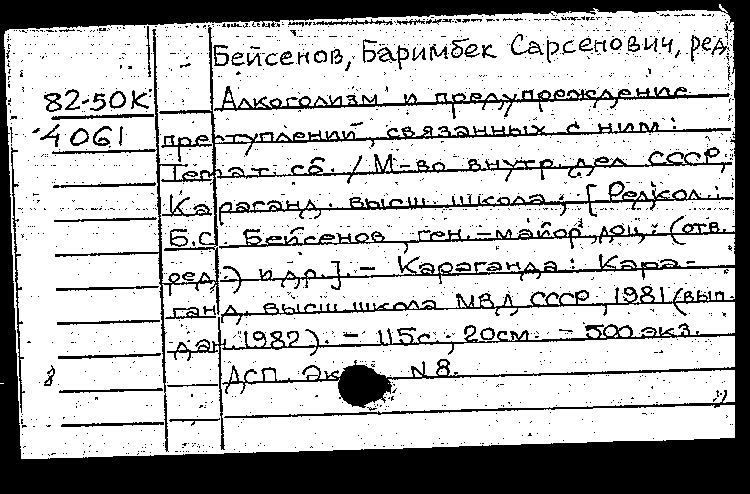 Бейсенов, Баримбек Сарсенович, ред.
82-50К Алкоголизм и предупреждение
4061 преступлений, связанных с ним:
Темат. сб. / М-во внутр. дел СССР,
Караганд. высш. школа; [Редкол.:
Б.С. Бейсенов, ген.-майор, доц. (отв.
ред.) и др.]. - Караганда: Кара-
ганд. высш. школа МВД СССР, 1981 (вып.
дан. 1982). - 115с.; 20см. - 500 экз.
ДСП. Эк N 8.